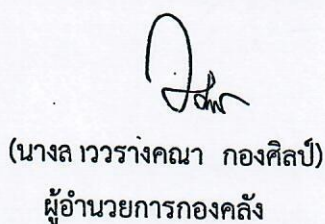 (นางล เววรางคณา กองศิลป์)
ผู้อำนวยการกองคลัง